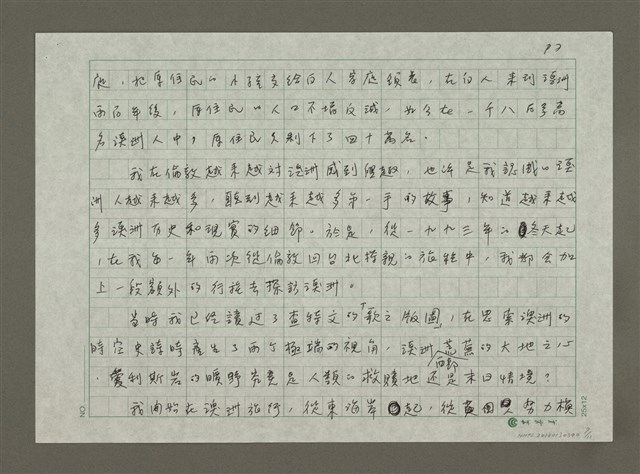 庭，把原住民的小孩交給白人家庭領養，在白人來到澳洲
兩百年後，原住民的人口不增反減，如今在一千八百多萬
名澳洲人中，原住民只剩下了四十萬名。
我在倫敦越來越對澳洲感到興趣，也許是我認識的澳
洲人越來越多，聽到越來越多第一手的故事，知道越來越
多澳洲歷史和現實的細節。於是，從一九九三年的冬天起
，在我每一年兩次從倫敦回台北探親的旅程中，我都會加
上一段額外的行程去探訪澳洲。
當時我已經讀過了查特文的「歌之版圖」，在思索澳洲的
時空史詩時產生了兩個極端的視角，澳洲西部荒蕪的大地之心
，愛利斯岩的曠野究竟是人類的救贖地還是末日情境？
我開始在澳洲旅行，從東海岸起，從黃努力橫
NO.
25x12